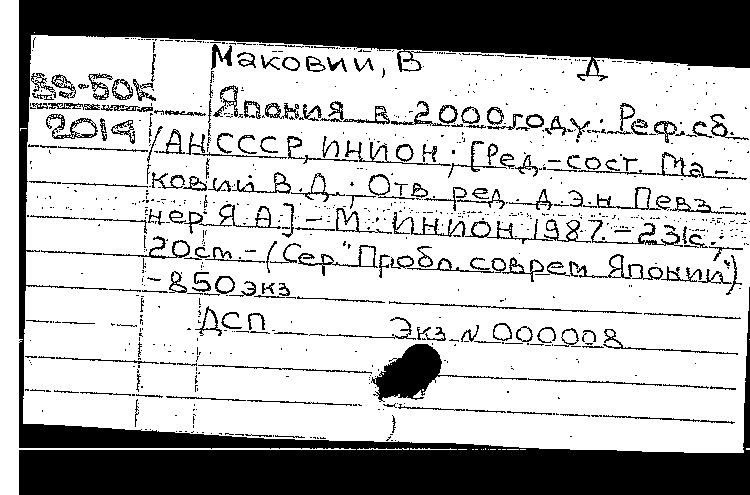 Маковии, В Д
89-50К
Япония в 2000 году: Реф. сб.
2014
/АН СССР, ИНИОН; [Ред.-сост. Ма-
ковии В.Д.; Отв. ред. д.э.н. Певз-
нер Я.А.] - М.: ИНИОН, 1987. - 231с.;
20см. - (Сер. "Пробл. соврем. Японии")
- 850 экз
ДСП Экз. № 000008